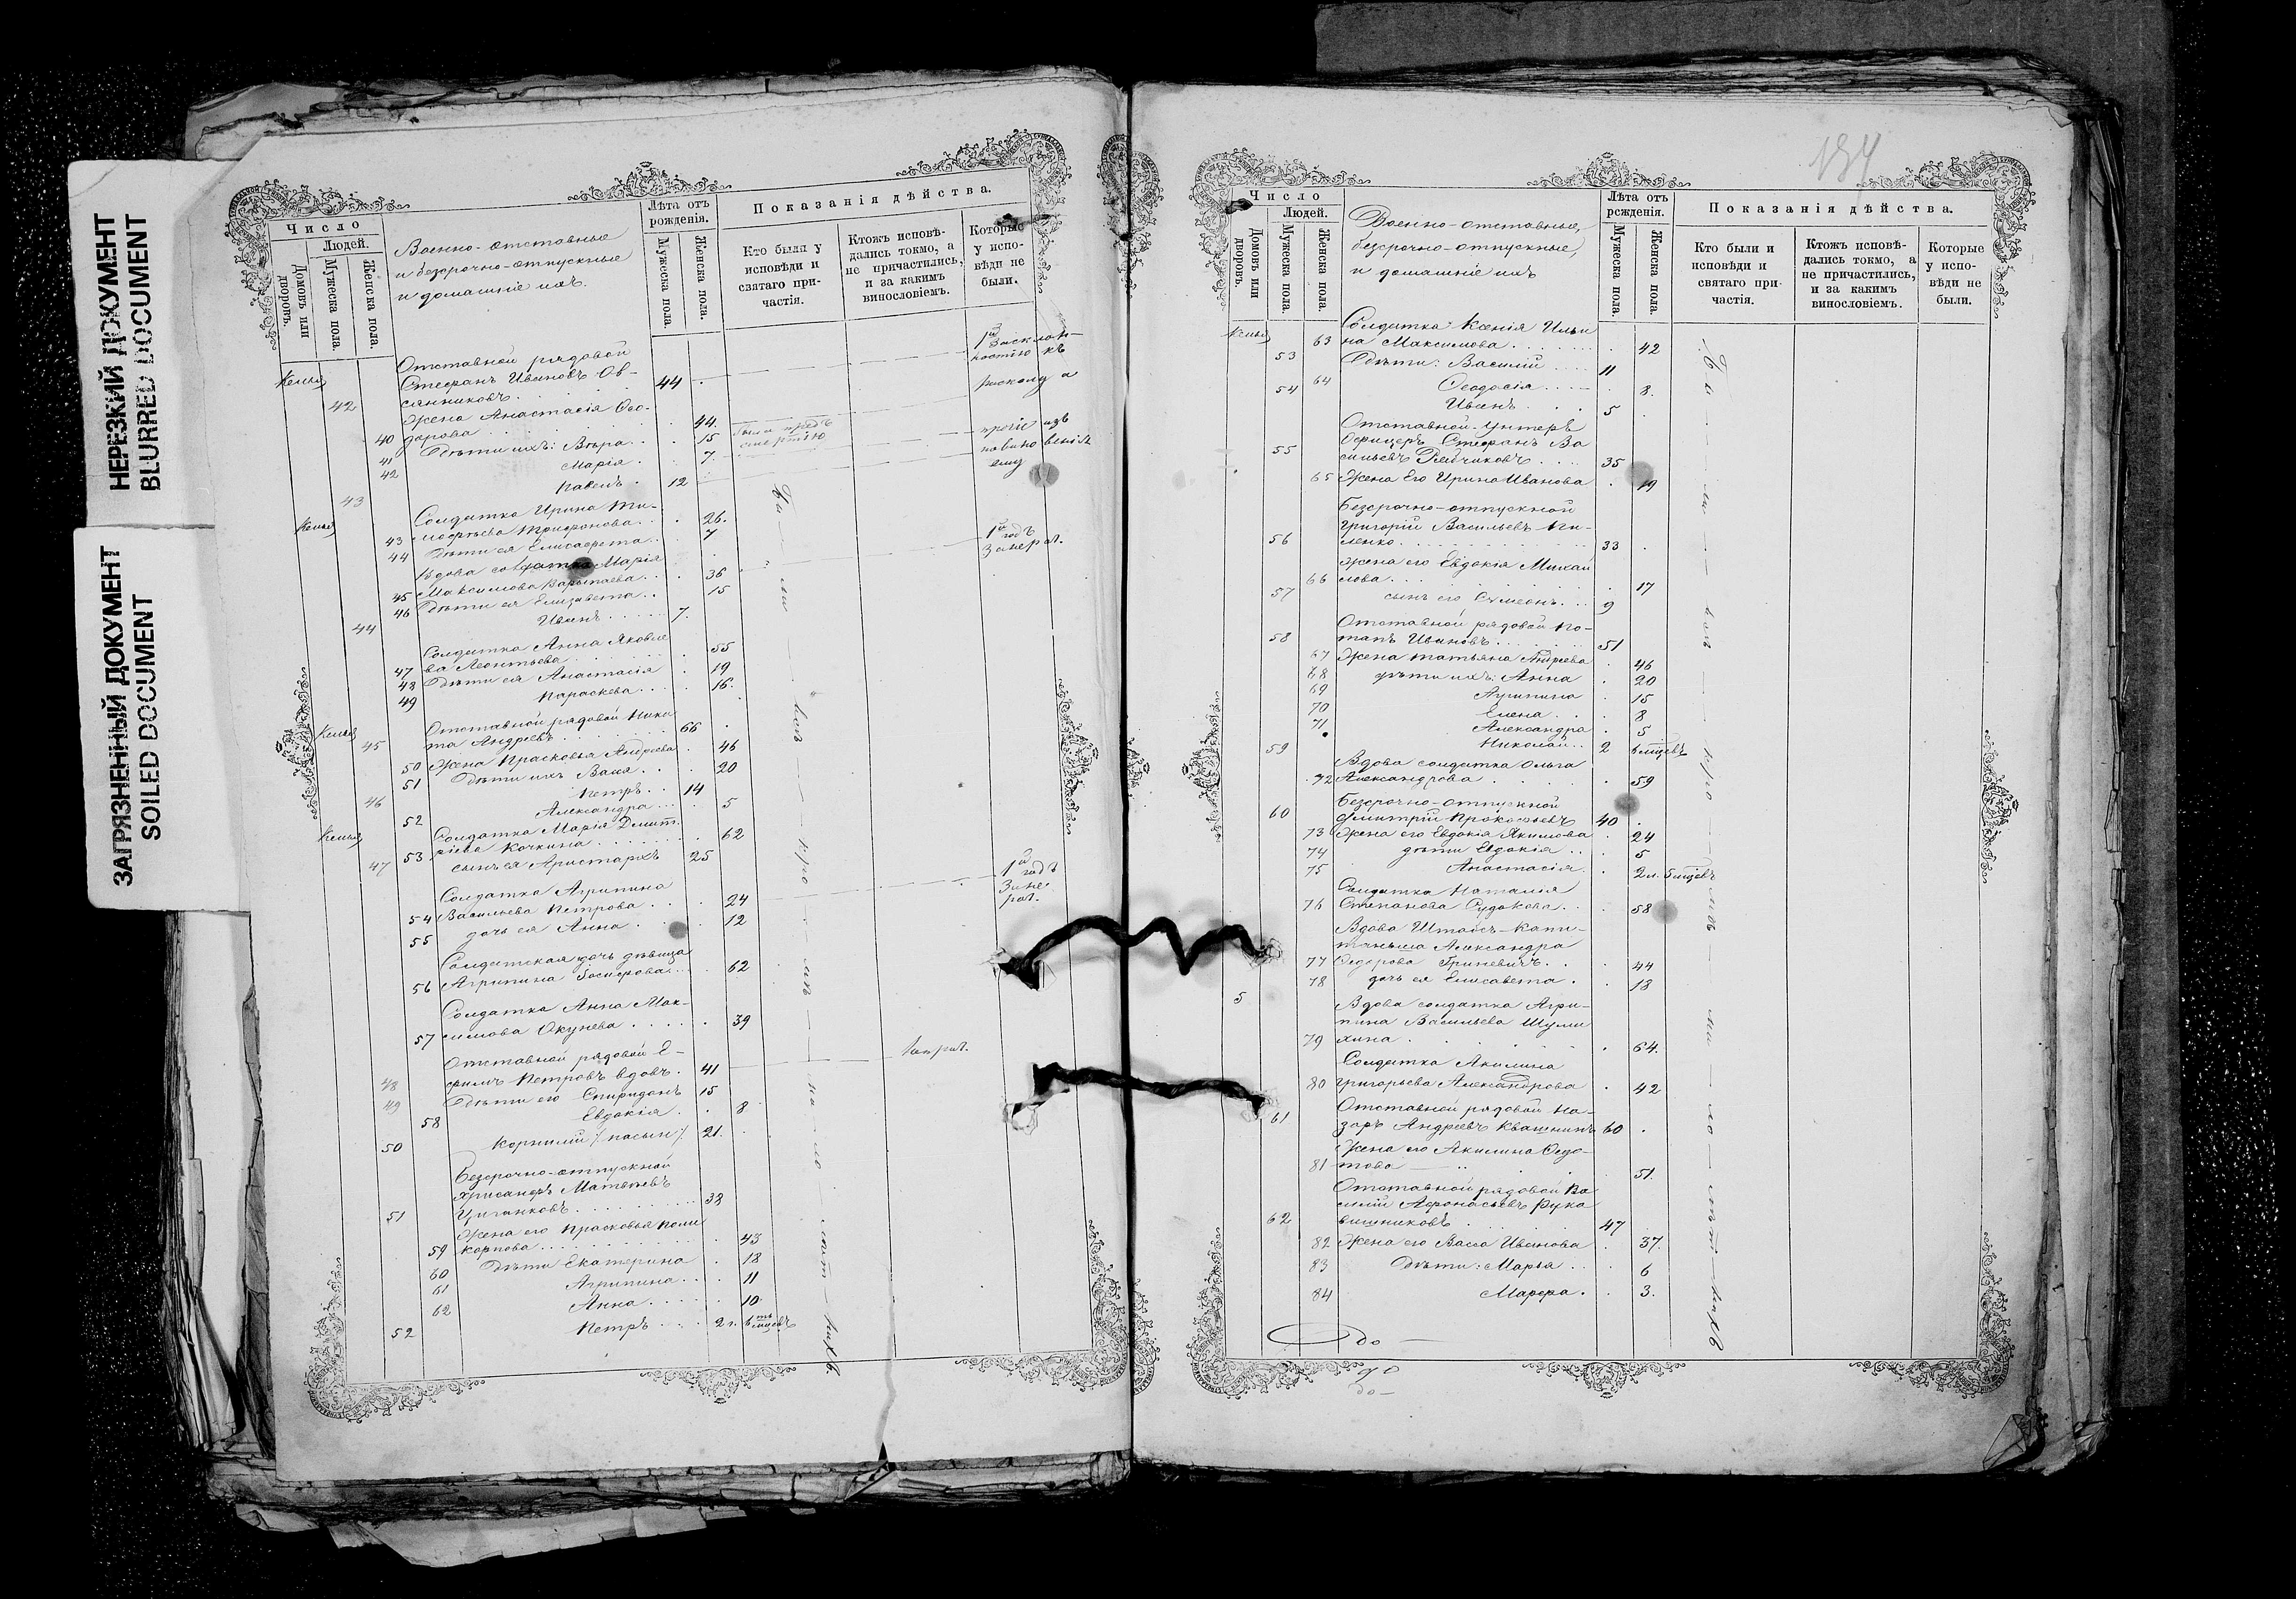 НЕРЕЗКИЙ ДОКУМЕНТ
BLURRED DOCUMENT
ЗАГРЯЗНЕННЫЙ ДОКУМЕНТ
SOILED DOCUMENT
Число
Людей.
Домовъ или дворовъ.
Мужеска пола.
Женска пола.
Военно-отставные
и безсрочно-отпускные
и домашніе ихъ.
Лѣта отъ рожденія.
Мужеска пола.
Женска пола.
Показанія дѣйства.
Кто были у исповѣди и святаго причастія.
Ктожъ исповѣдались токмо, а не причастились, и за какимъ винословіемъ.
Которые у исповѣди не были.
Отставной рядовой
42 Стефанъ Ивановъ Ов-
сянниковъ. 44
Жена Анастасія Ѳео-
40 дорова 44.
41 Дѣти ихъ: Вѣра 15
42 Марія 7.
43 Павелъ 12
Солдатка Ирина Ти-
43 моѳеева Трифонова 26.
44 Дѣти ея Елисавета 7
Вдова солдатка Марія
45 Максимова 36
46 Дѣти ея Елизавета 15
44 Иванъ 7.
Солдатка Анна Яковле
47 ва Леонтьева 55
48 Дѣти ея Анастасія 19
49 Параскева 16.
Отставной рядовой Ники
45 та Андреевъ 66
50 Жена Прасковья Андреева 46
51 Дѣти ихъ Васса 20
46 Петръ 14
52 Александра 5
Солдатка Марія Дмит
53 ріева Кочкина 62
47 сынъ ея Аристархъ 25
Солдатка Агрипина
54 Васильева Петрова 24
55 дочь ея Анна 12
Солдатская дочь дѣвица
56 Агрипина 62
Солдатка Анна Мак-
57 симова Окунева 39
Отставной рядовой Е-
48 фимъ Петровъ вдовъ 41
49 Дѣти его Спиридонъ 15
58 Евдокія 8
50 Корнилій /пасын/. 21.
Безсрочно-отпускной
Хрисанфъ Матвѣевъ
51 Циганковъ 38
Жена его Прасковья Поли
59 карпова 43
60 Дѣти Екатерина 18
61 Агрипина 11
62 Анна 10
52 Петръ 2 г.
Число
Людей.
Домовъ или дворовъ.
Мужеска пола.
Женска пола.
Военно-отставные,
безсрочно-отпускные,
и домашніе ихъ
Лѣта отъ рожденія.
Мужеска пола.
Женска пола.
Показанія дѣйства.
Кто были и исповѣди и святаго причастія.
Ктожъ исповѣдались токмо, а не причастились, и за какимъ винословіемъ.
Которые у исповѣди не были.
Солдатка Ксенія Ильи
63 на Максимова 42
53 Дѣти: Василій 11
64 Ѳеодосія 8.
54 Иванъ 5
Отставной Унтеръ
Офицеръ Стефанъ Ва
55 сильевъ Рябчиковъ 35
65 Жена Его Ирина Иванова 19
Безсрочно-отпускной
Григорій Васильевъ
56 33
Жена его Евдокія Михаи
66 лова 17
57 сынъ его Сѵмеонъ 9
Отставной рядовой По-
58 тапъ Ивановъ 51
67 Жена Татьяна Андреева 46
68 дѣти ихъ: Анна 20
69 Агрипина 15
70 Елена 8
71 Александра 5
59 Николай 2
Вдова солдатка Ольга
72 Александрова 59
Безсрочно-отпускной
60 Дмитрій Прокофьевъ 40
73 Жена его Евдокія Якимова 24
74 дѣти Евдокія 5
75 Анастасія 2
Солдатка Наталія
76 Степанова Судакова 58
Вдова Штабсъ-Капи-
таньша Александра
77 Ѳедорова Гриневичъ 44
78 дочь ея Елисавета 13
5 Вдова солдатка Агри-
пина Васильева Шули
79 хина 64.
Солдатка Акилина
80 Григорьева Александрова 42
Отставной рядовой На-
61 заръ Андреевъ Квашнинъ 60
Жена его Акилина Ѳедо-
81 това 51.
Отставной рядовой Ва
силій Афонасьевъ Рука
62 вишниковъ 47
82 Жена его Васса Иванова 37.
83 Дѣти: Марья 6
84 Марфа 3.